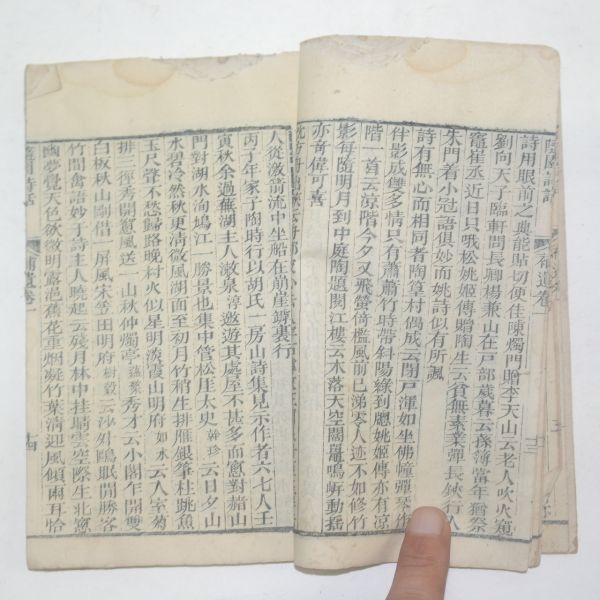 隨園詩話
補遺卷一
詩用眼前之典能貼切便佳陳燭門贈李天山云老人吹火窺
劉向天子臨軒問長卿楊兼山在戸部歲暮云孫簿當年猶祭
竈崔丞近日只哦松姚姬傳贈陶生云貧無素業彈長鋏行入
朱門着小冠語俱妙而姚詩似有所諷
詩有無心而相同者陶篁村偶成云閉戸渾如坐佛幢彈琴作
伴影成雙多情只有蕭蕭竹時帶斜陽綠到窻姚姬傳亦有涼
階一首云涼階今夕又飛螢倚檻風前已涕零人迹不如修竹
影每隨明月到中庭陶題閱江樓云木落天空闊鼉鳴嶼動搖
亦奇偉可喜
人從激箭流中坐船在崩崖罅裏行
丙丁年家子陶時行以胡氏一房山詩集見示作者六七人壬
寅秋余過蕪湖主人澉泉淳邀遊其處屋不甚多而窻對赭山
門對湖水洵鳩江一勝景也集中管松厓太史幹珍云日夕山
水碧冷然秋更清微風湖面至初月竹稍生排雁銀箏柱跳魚
玉尺聲不愁歸路晚村火似星明淡霞山明府如水云入室菊
排三徑秀開窻風送一山秋仲燭亭蘊檠秀才云小閣乍開雙
白板秋山剛借一屏風宋笠田明府樹穀云沙外鷗眠閒勝客
竹間禽語妙于詩主人曉起云殘月林中挂晴雲空際生北窻
幽夢覺天色欲微明露浥蕉花重烟凝竹葉清迎風傾兩耳恰
隨園詩話
補遺卷一
十四